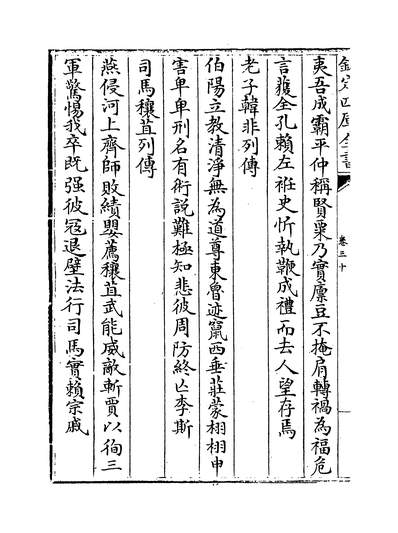 欽定四庫全書
卷三十
夷吾成霸平仲稱賢粟乃實廪豆不掩肩轉禍為福危
言獲全孔賴左衽史忻執鞭成禮而去人望存焉
老子韓非列傳
伯陽立教清淨無為道尊東魯迹竄西垂莊蒙栩栩申
害卑卑刑名有術說難極知悲彼周防終亡李斯
司馬穰苴列傳
燕侵河上齊師敗績嬰薦穰苴武能威敵斬賈以徇三
軍驚惕我卒既强彼冦退壁法行司馬實賴宗戚